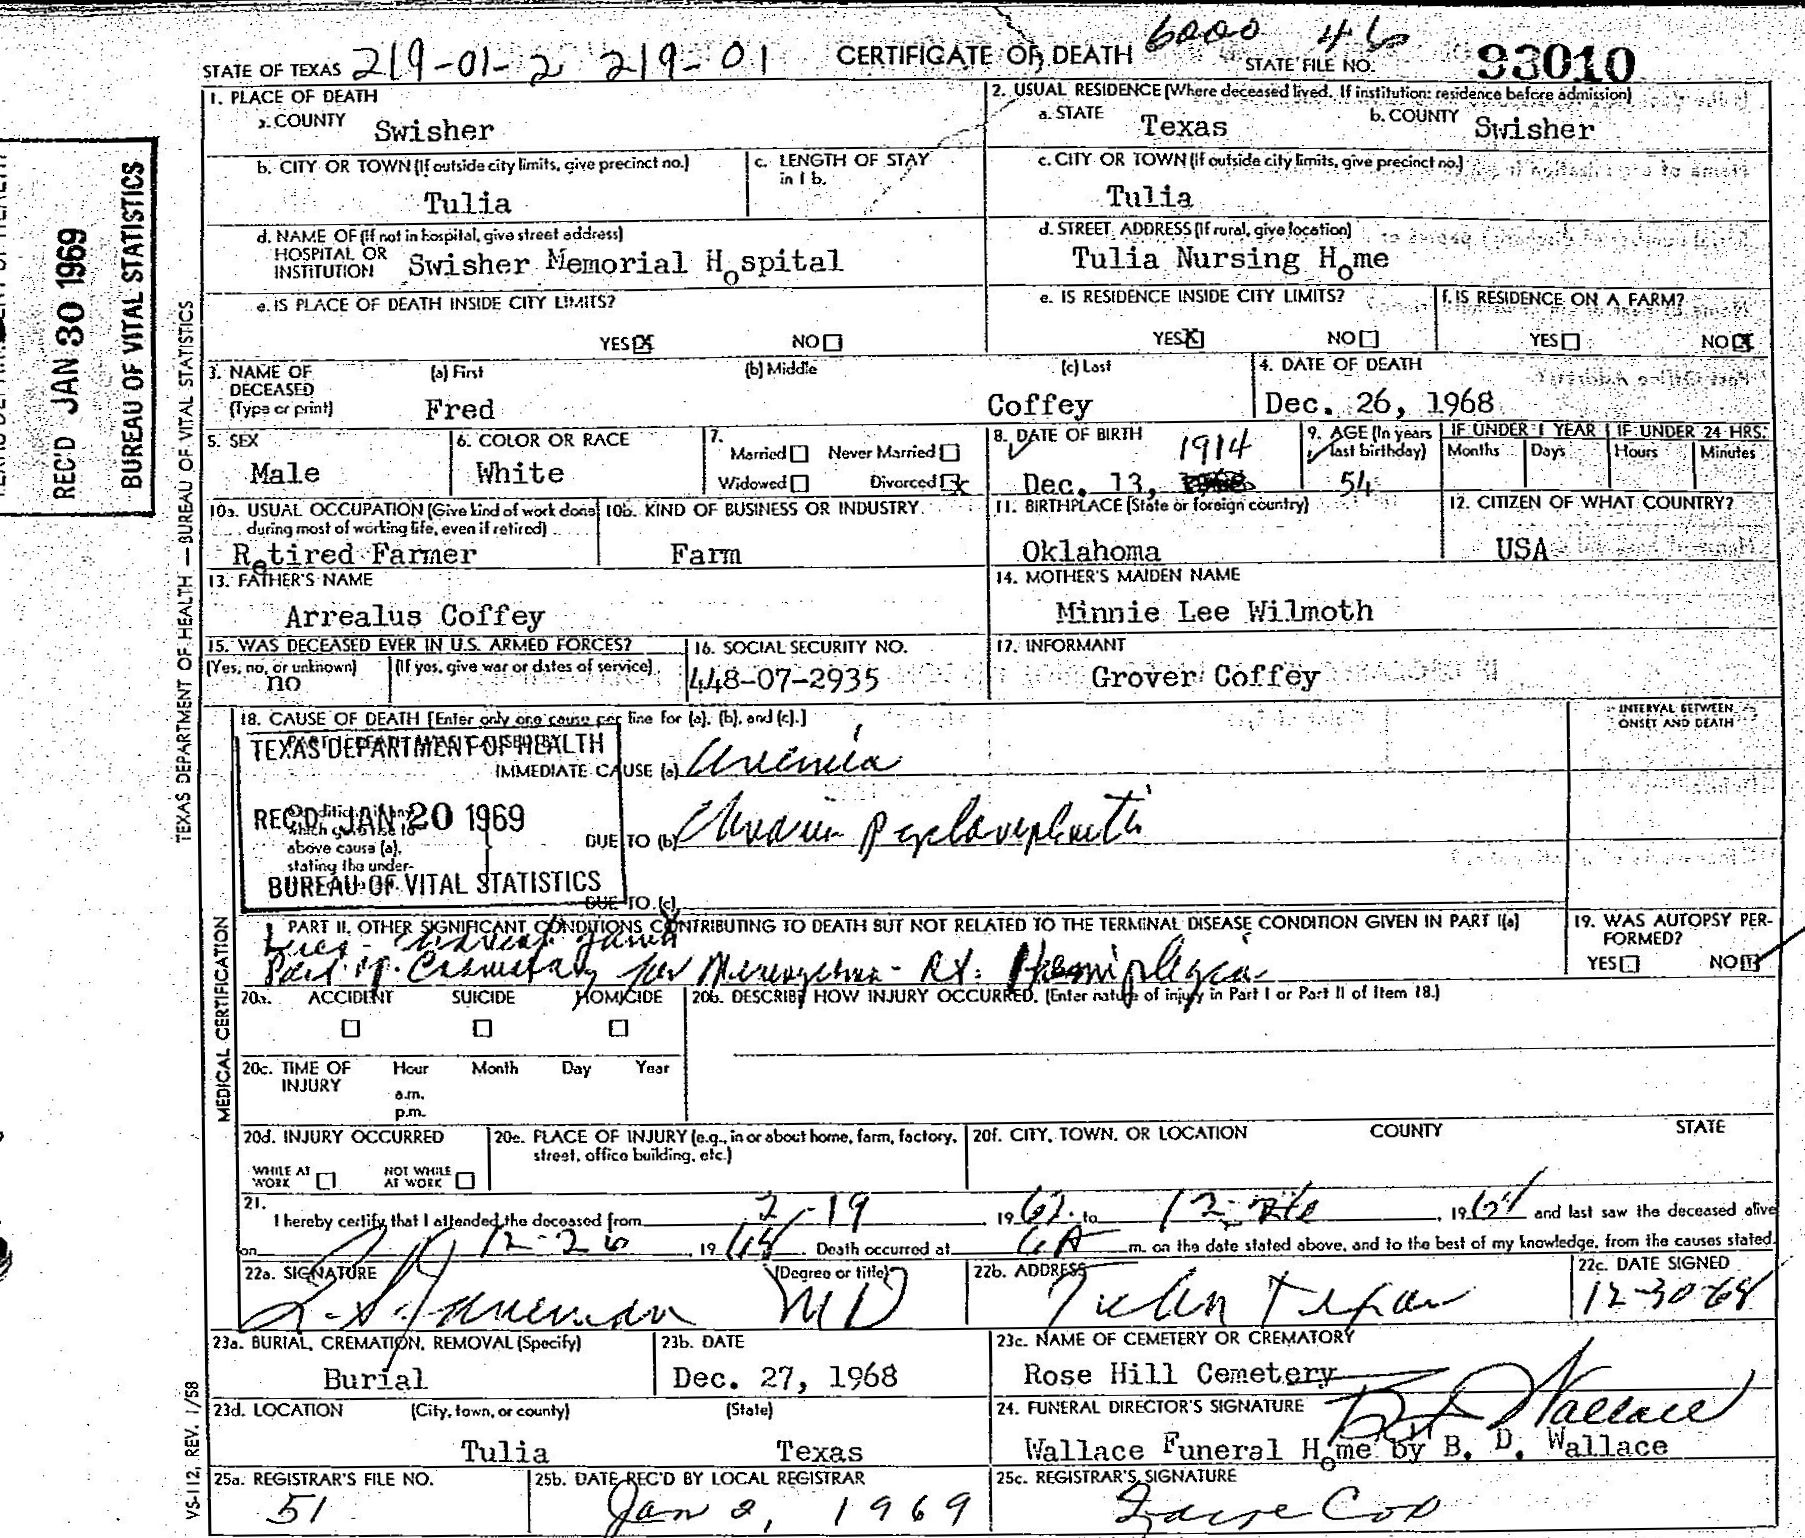 STATE OF TEXAS 219-01-2 219-01 CERTIFICATE OF DEATH 6000 46 STATE FILE NO. 93010
1. PLACE OF DEATH
a. COUNTY Swisher
2. USUAL RESIDENCE (Where deceased lived. If institution: residence before admission)
a. STATE Texas b. COUNTY Swisher
b. CITY OR TOWN (If outside city limits, give precinct no.) Tulia
c. LENGTH OF STAY in 1b.
c. CITY OR TOWN (If outside city limits, give precinct no.) Tulia
d. NAME OF (If not in hospital, give street address) HOSPITAL OR INSTITUTION Swisher Memorial Hospital
d. STREET ADDRESS (If rural, give location) Tulia Nursing Home
e. IS PLACE OF DEATH INSIDE CITY LIMITS?
YES X NO
e. IS RESIDENCE INSIDE CITY LIMITS?
YES X NO
f. IS RESIDENCE ON A FARM?
YES NO X
3. NAME OF DECEASED (Type or print) (a) First (b) Middle (c) Last
Fred Coffey
4. DATE OF DEATH
Dec. 26, 1968
5. SEX
Male
6. COLOR OR RACE
White
7. Married Never Married
Widowed Divorced X
8. DATE OF BIRTH 1914
Dec. 13,
9. AGE (In years last birthday)
54
IF UNDER 1 YEAR IF UNDER 24 HRS.
Months Days Hours Minutes
10a. USUAL OCCUPATION (Give kind of work done during most of working life, even if retired)
Retired Farmer
10b. KIND OF BUSINESS OR INDUSTRY
Farm
11. BIRTHPLACE (State or foreign country)
Oklahoma
12. CITIZEN OF WHAT COUNTRY?
USA
13. FATHER'S NAME
Arrealus Coffey
14. MOTHER'S MAIDEN NAME
Minnie Lee Wilmoth
15. WAS DECEASED EVER IN U.S. ARMED FORCES?
(Yes, no, or unknown) (If yes, give war or dates of service)
no
16. SOCIAL SECURITY NO.
448-07-2935
17. INFORMANT
Grover Coffey
18. CAUSE OF DEATH [Enter only one cause per line for (a), (b), and (c).]
INTERVAL BETWEEN ONSET AND DEATH
TEXAS DEPARTMENT OF HEALTH
IMMEDIATE CAUSE (a) Uremia
REC'D JAN 20 1969
above cause (a),
stating the under-
DUE TO (b) Chronic Pyelonephritis
BUREAU OF VITAL STATISTICS
DUE TO (c)
PART II. OTHER SIGNIFICANT CONDITIONS CONTRIBUTING TO DEATH BUT NOT RELATED TO THE TERMINAL DISEASE CONDITION GIVEN IN PART I(a)
Hemiplegia
19. WAS AUTOPSY PERFORMED?
YES NO
20a. ACCIDENT SUICIDE HOMICIDE
20b. DESCRIBE HOW INJURY OCCURRED. (Enter nature of injury in Part I or Part II of Item 18.)
20c. TIME OF INJURY Hour Month Day Year
a.m.
p.m.
20d. INJURY OCCURRED
WHILE AT WORK NOT WHILE AT WORK
20e. PLACE OF INJURY (e.g., in or about home, farm, factory, street, office building, etc.)
20f. CITY, TOWN, OR LOCATION COUNTY STATE
21. I hereby certify that I attended the deceased from 2-19 1962, to 12-26, 1968 and last saw the deceased alive
on 12-26, 1968. Death occurred at 6A m. on the date stated above, and to the best of my knowledge, from the causes stated.
22a. SIGNATURE (Degree or title)
MD
22b. ADDRESS
Tulia Texas
22c. DATE SIGNED
12-30-68
23a. BURIAL, CREMATION, REMOVAL (Specify)
Burial
23b. DATE
Dec. 27, 1968
23c. NAME OF CEMETERY OR CREMATORY
Rose Hill Cemetery
23d. LOCATION (City, town, or county) (State)
Tulia Texas
24. FUNERAL DIRECTOR'S SIGNATURE B D Wallace
Wallace Funeral Home by B. D. Wallace
25a. REGISTRAR'S FILE NO.
51
25b. DATE REC'D BY LOCAL REGISTRAR
Jan 2, 1969
25c. REGISTRAR'S SIGNATURE
Cox
REC'D JAN 30 1969
BUREAU OF VITAL STATISTICS
TEXAS DEPARTMENT OF HEALTH — BUREAU OF VITAL STATISTICS
MEDICAL CERTIFICATION
VS-112, REV. 1/58